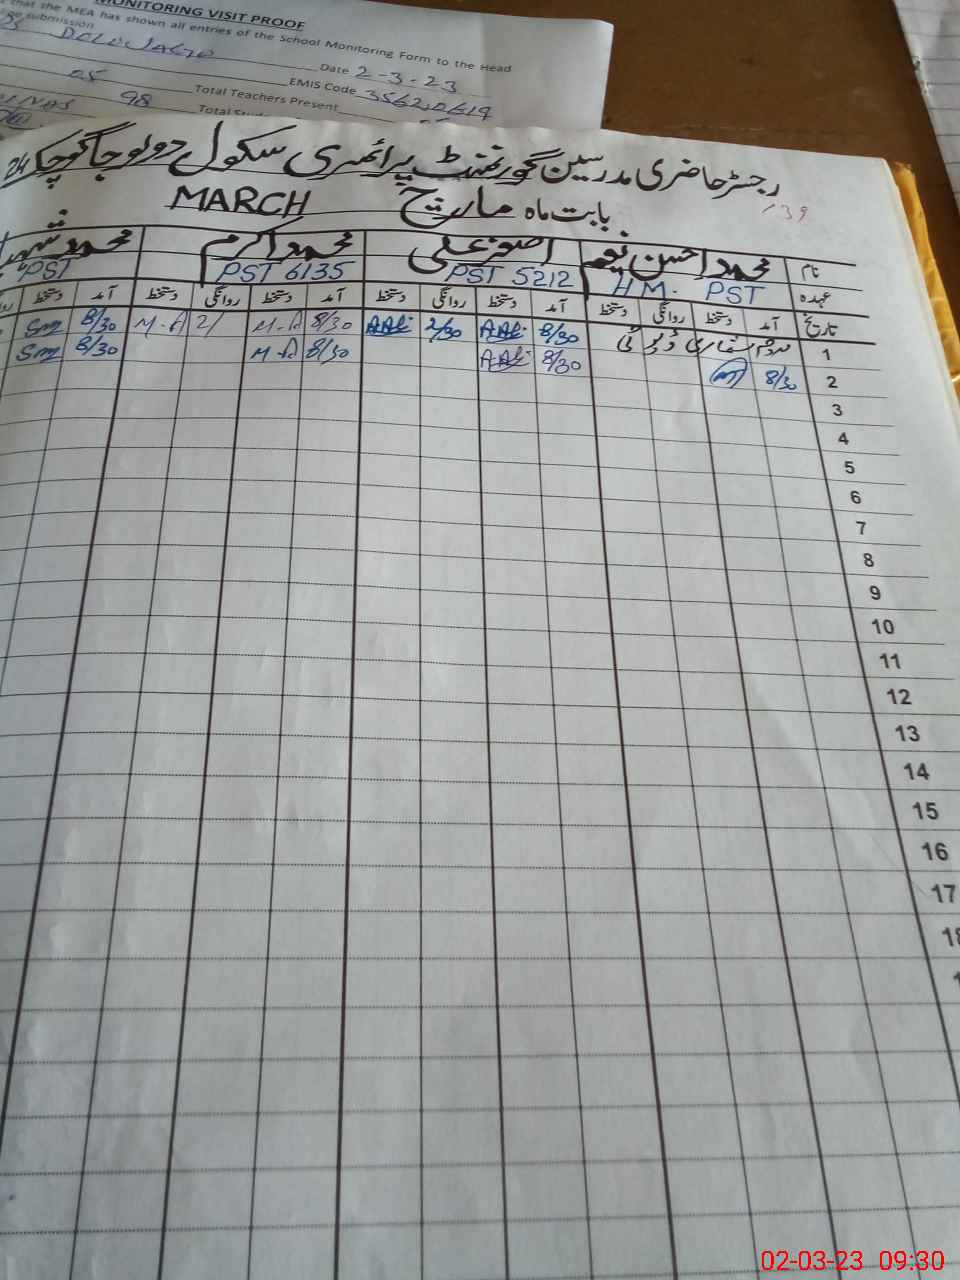 MONITORING VISIT PROOF
that the MEA has shown all entries of the School Monitoring Form to the Head
submission
Date 2-3-23
05 EMIS Code 35620619
98 Total Teachers Present
Total
رجسٹر حاضری مدرسین گورنمنٹ پرائمری سکول دولوجاگوچک 24
139
بابت ماہ مارچ MARCH
نام محمد احسن نعیم اصغر علی محمد اکرم محمد
عہدہ H.M. PST PST 5212 PST 6135 PST
تاریخ آمد دستخط روانگی دستخط آمد دستخط روانگی دستخط آمد دستخط روانگی دستخط آمد دستخط
1 ڈیوٹی 8/30 A.Ali 2/30 A.Ali 8/30 M.A 2/ M.A 8/30
2 8/30 8/30 A.Ali 8/30 M.A 8/30
3
4
5
6
7
8
9
10
11
12
13
14
15
16
17
18
02-03-23 09:30